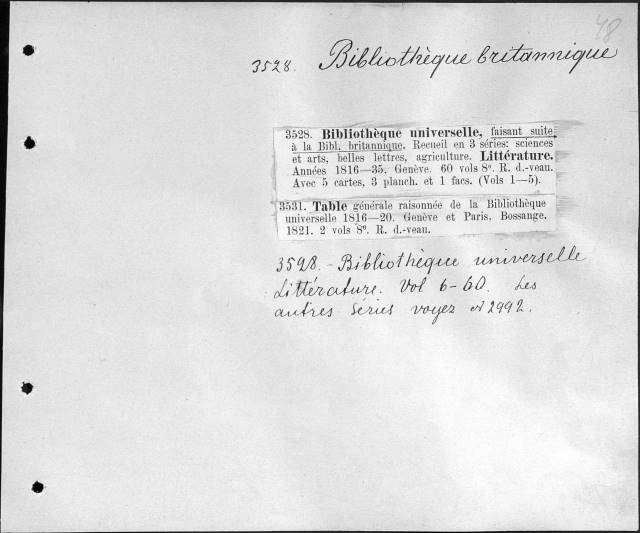 48
3528. Bibliothèque britannique
3528. Bibliothèque universelle, faisant suite
à la Bibl. britannique. Recueil en 3 séries: sciences
et arts, belles lettres, agriculture. Littérature.
Années 1816—35. Genève. 60 vols 8º. R. d.-veau.
Avec 5 cartes, 3 planch. et 1 facs. (Vols 1—5).
3531. Table générale raisonnée de la Bibliothèque
universelle 1816—20. Genève et Paris, Bossange.
1821. 2 vols 8º. R. d.-veau.
3528. - Bibliothèque universelle
Littérature. Vol 6-60. Les
autres Séries voyez № 2992.